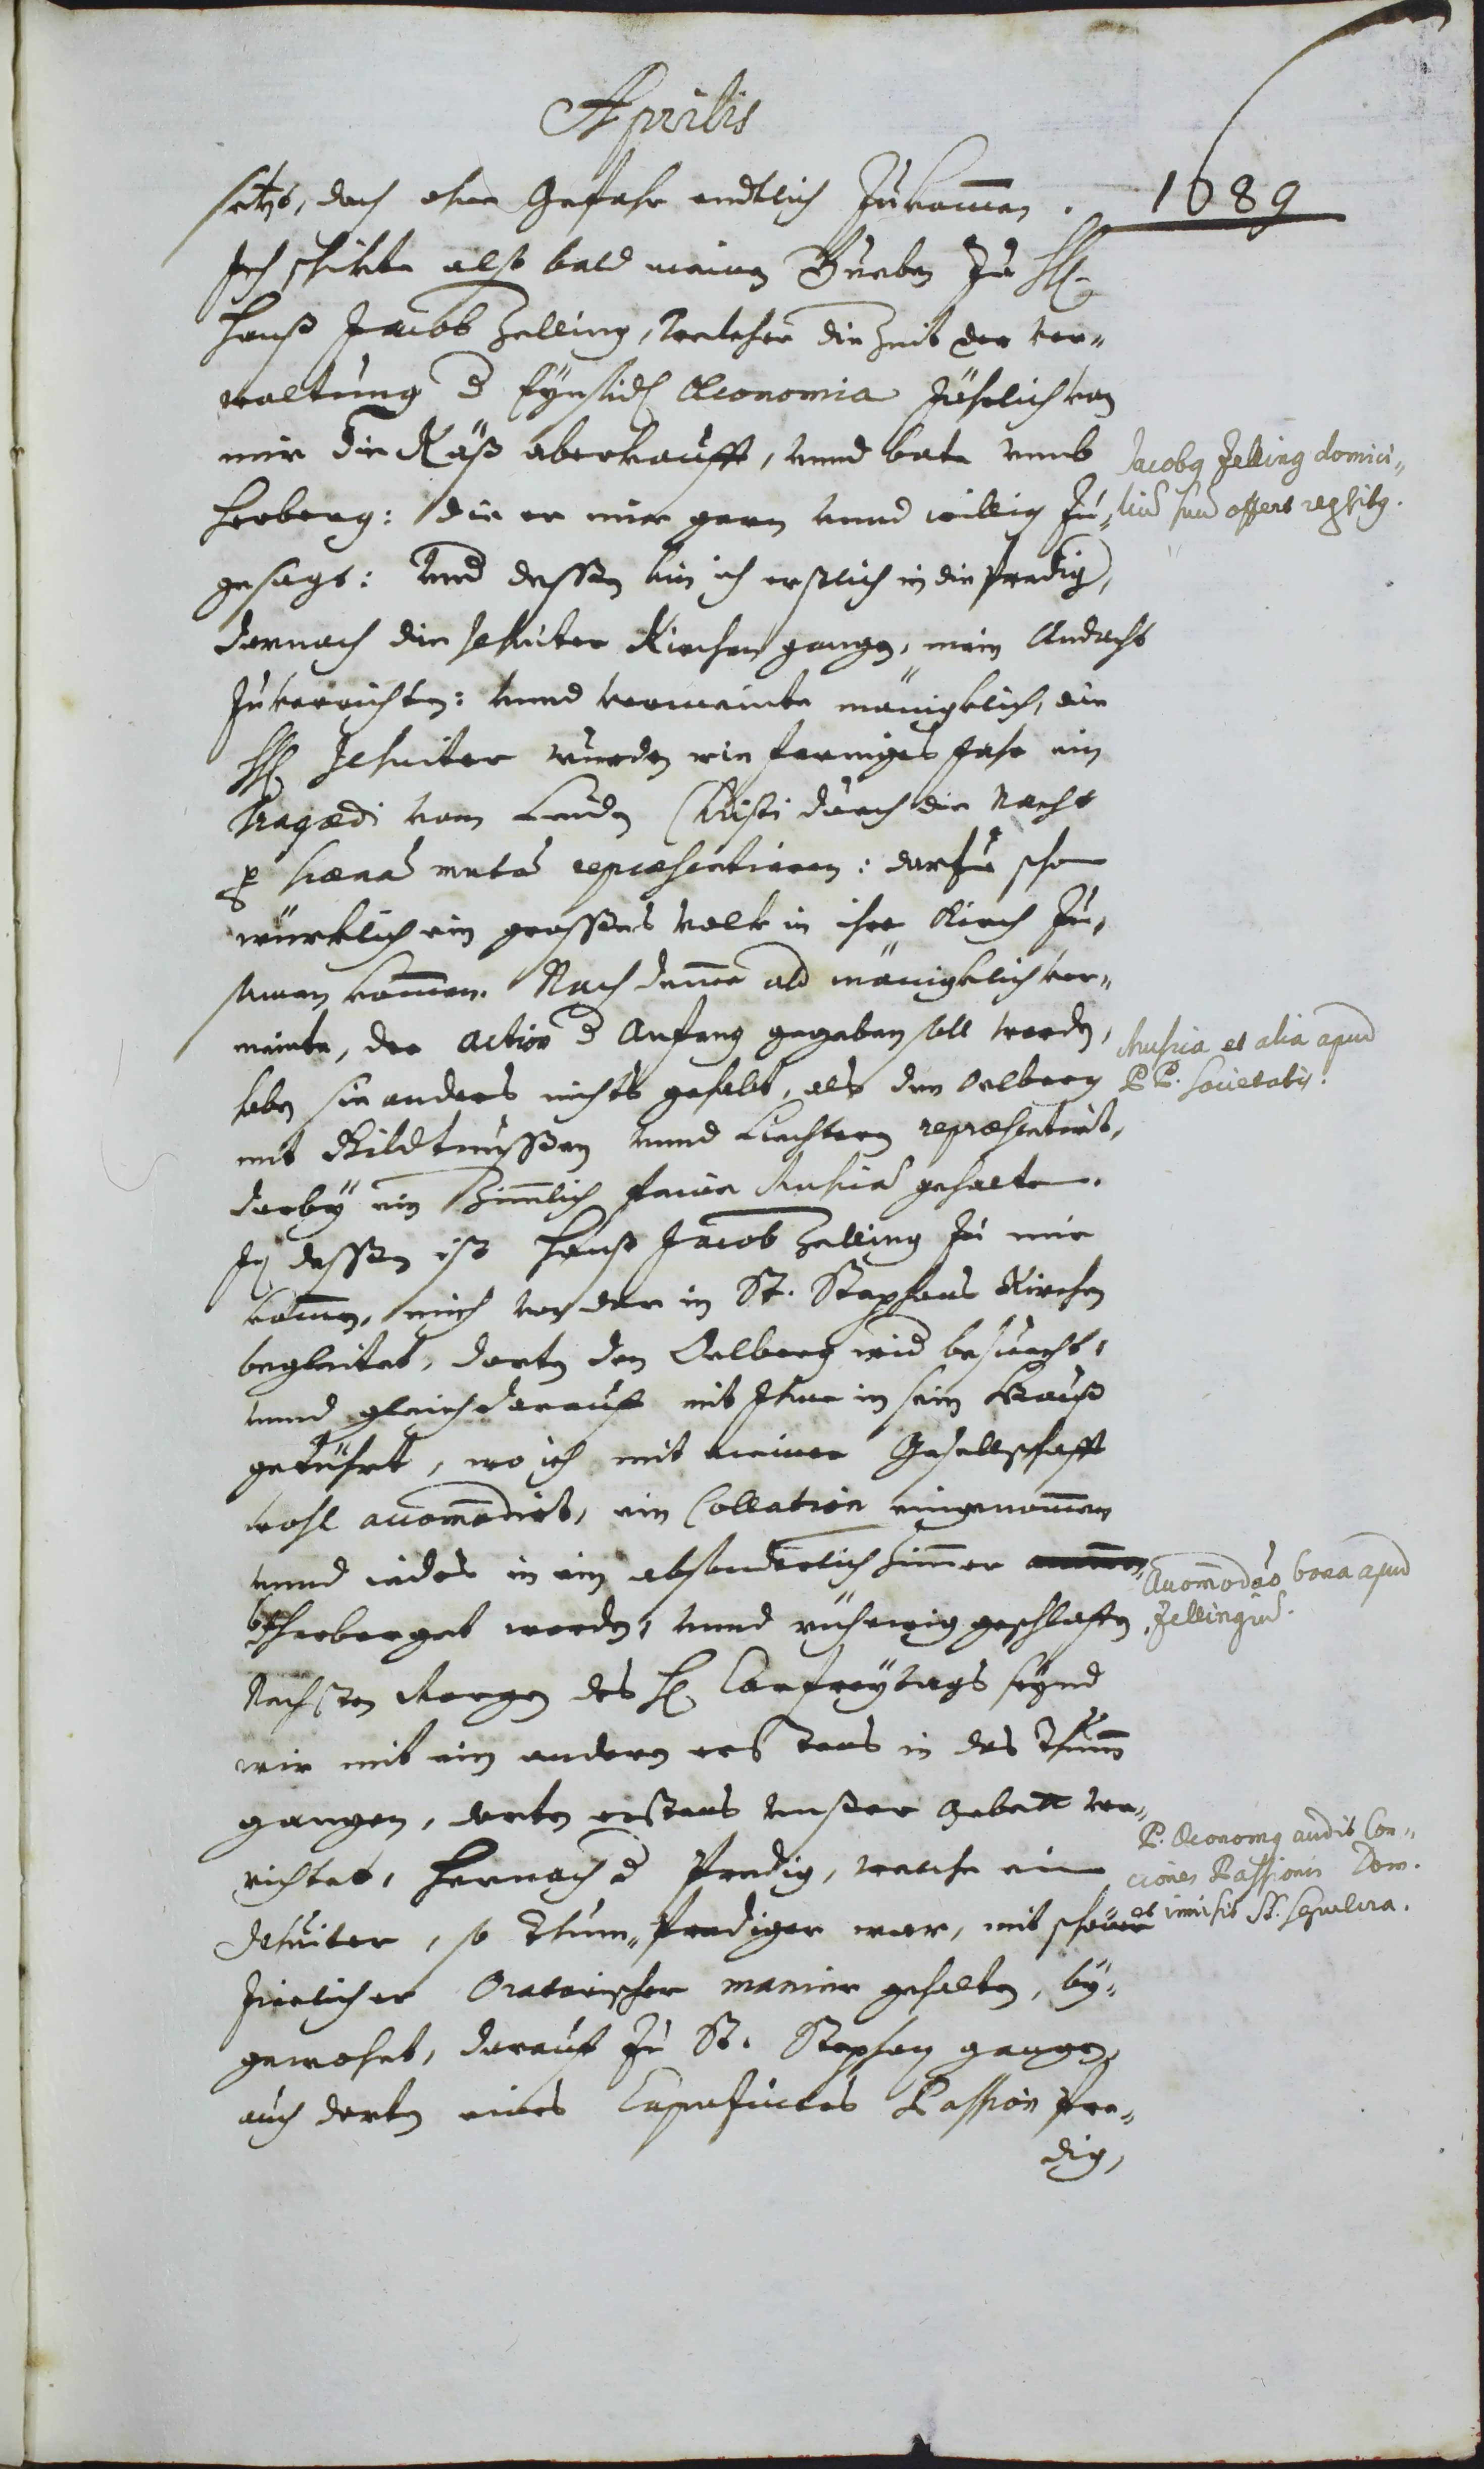 Aprilis
1689
setzt, doch ohne Gefahr endtlich zukommen.
Ich schikte also bald meinen Bueben zu H.
Hanß Jacob Zelling, welcher die Zeit der ver-
waltung d Eynsidl. Œconomia Jährlich von
mir die Käß aberkaufft, vnnd bate vmb
Herberg: die er mir gern vnnd willig zu-
gesagt: Vnd dessen bin ich erstlich in die Predig,
darnach die Jesuiter Kirchen gangen, mein Andacht
zuverrichten: vnnd vermeinte mänigklich, die
HH. Jesuiter wurden wie ferniges Jahr ein
Tragædi vom Leyden Christi durch die Nacht
p scena muta repræsentieren: darzu schon
würklich ein grosses volk in ihre Kirch zu-
samen kommen. Nach deme als mänigklich ver-
meinte, der action d Anfang gegeben soll werden,
haben sie anders nichts gehabt, als den Oelberg
mit Bildtnussen vnnd Liechtern repræsentirt,
darby ein Zimlich feine Musica gehalten.
In dessen ist Hanß Jacob Zelling zu mir
kommen, mich von dar in St. Stephans Kirchen
begleitet, dorten den Oelberg wid besuecht,
vnnd gleich darauf mit Ihme in sein Hauß
geführt, wo ich mit meiner Gesellschafft
wohl accomodirt, ein Collation eingenommen
vnnd iedes in ein absonderlich Zimmer
beherberget worden, vnnd rühewig geschlafen.
Nechsten Morgen des H. Carfreytags seynd
wir mit ein andern erstens in das Thum
gangen, dorten erstens vnser Gebett ver-
richtet, hernach d Predig, welche ein
Jesuiter, so Thum-Prediger war, mit schöner
zierlicher Oratorischer manier gehalten, by-
gewohnt, darauf zu St. Stephan gangen,
auch dorten eines Capuciners Passion Pre-
dig,
Jacobg Zelling domici-
liu suu offert
Musica et alia apud
P P. Societatis.
Accomodao bona apud
Zellingiu.
P. Oeconomg audit Con-
ciones Passionis Dom.
et invisit St. Sepulcra.